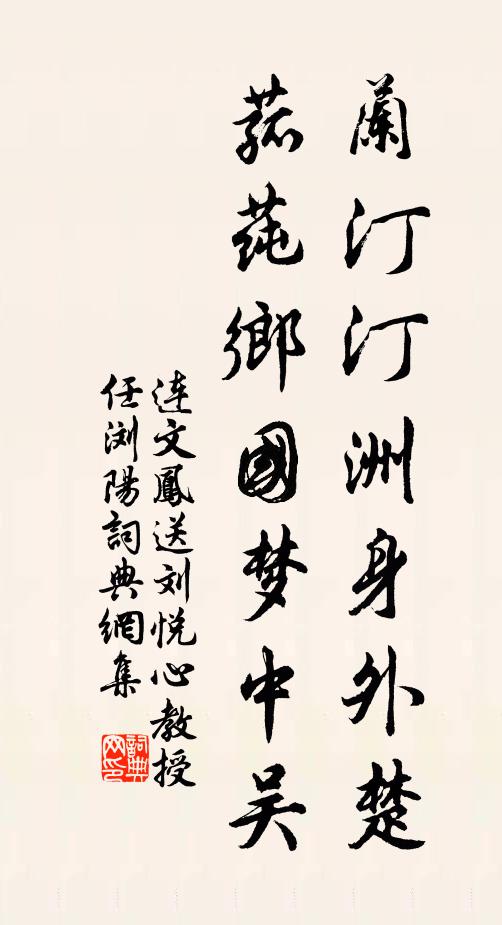 蘭汀汀洲身外楚
菰莼鄉國梦中吴
连文鳳送刘悦心教授
任浏陽詞典網集
詞典
网印